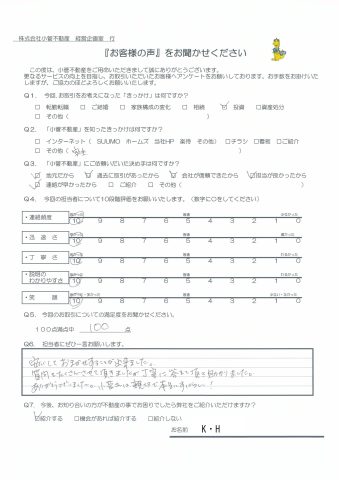 株式会社小菅不動産 経営企画室 行
『お客様の声』をお聞かせください
この度は、小菅不動産をご用命いただきまして誠にありがとうございます。
更なるサービスの向上を目指し、お取引いただいたお客様へアンケートをお願いしております。お手数をお掛けいた
しますが、ご協力のほどよろしくお願いいたします。
Q1. 今回、お取引をお考えになった「きっかけ」は何ですか?
□ 転勤転職 □ ご結婚 □ 家族構成の変化 □ 相続 ☑ 投資 □資産処分
□ その他( )
Q2. 「小菅不動産」を知ったきっかけは何ですか?
□ インターネット( SUUMO ホームズ 当社HP 楽待 その他) □チラシ □看板 □ご紹介
□ その他( )
Q3. 「小菅不動産」にご依頼いただいた決め手は何ですか?
☑ 地元だから ☑ 過去に取引があったから ☑ 会社が信頼できたから ☑担当が良かったから
☑ 連絡が早かったから □ ご紹介 □ その他( )
Q4. 今回の担当者について10段階評価をお願いいたします。(数字に○をしてください)
・連絡頻度 10 9 8 7 6 5 4 3 2 1 0
・迅 速 さ 10 9 8 7 6 5 4 3 2 1 0
・丁 寧 さ 10 9 8 7 6 5 4 3 2 1 0
・説明の
わかりやすさ 10 9 8 7 6 5 4 3 2 1 0
・笑 顔 10 9 8 7 6 5 4 3 2 1 0
Q5. 今回のお取引についての満足度をお聞かせください。
100点満点中 100 点
Q6. 担当者にぜひ一言お願いします。
安心しておまかせすることが出来ました。
質問もたくさんさせて頂きましたが丁寧に答えて頂き助かりました。
ありがとうございました。
Q7. 今後、お知り合いの方が不動産の事でお困りでしたら弊社をご紹介いただけますか?
☑紹介する □機会があれば紹介する □紹介しない
お名前 K・H